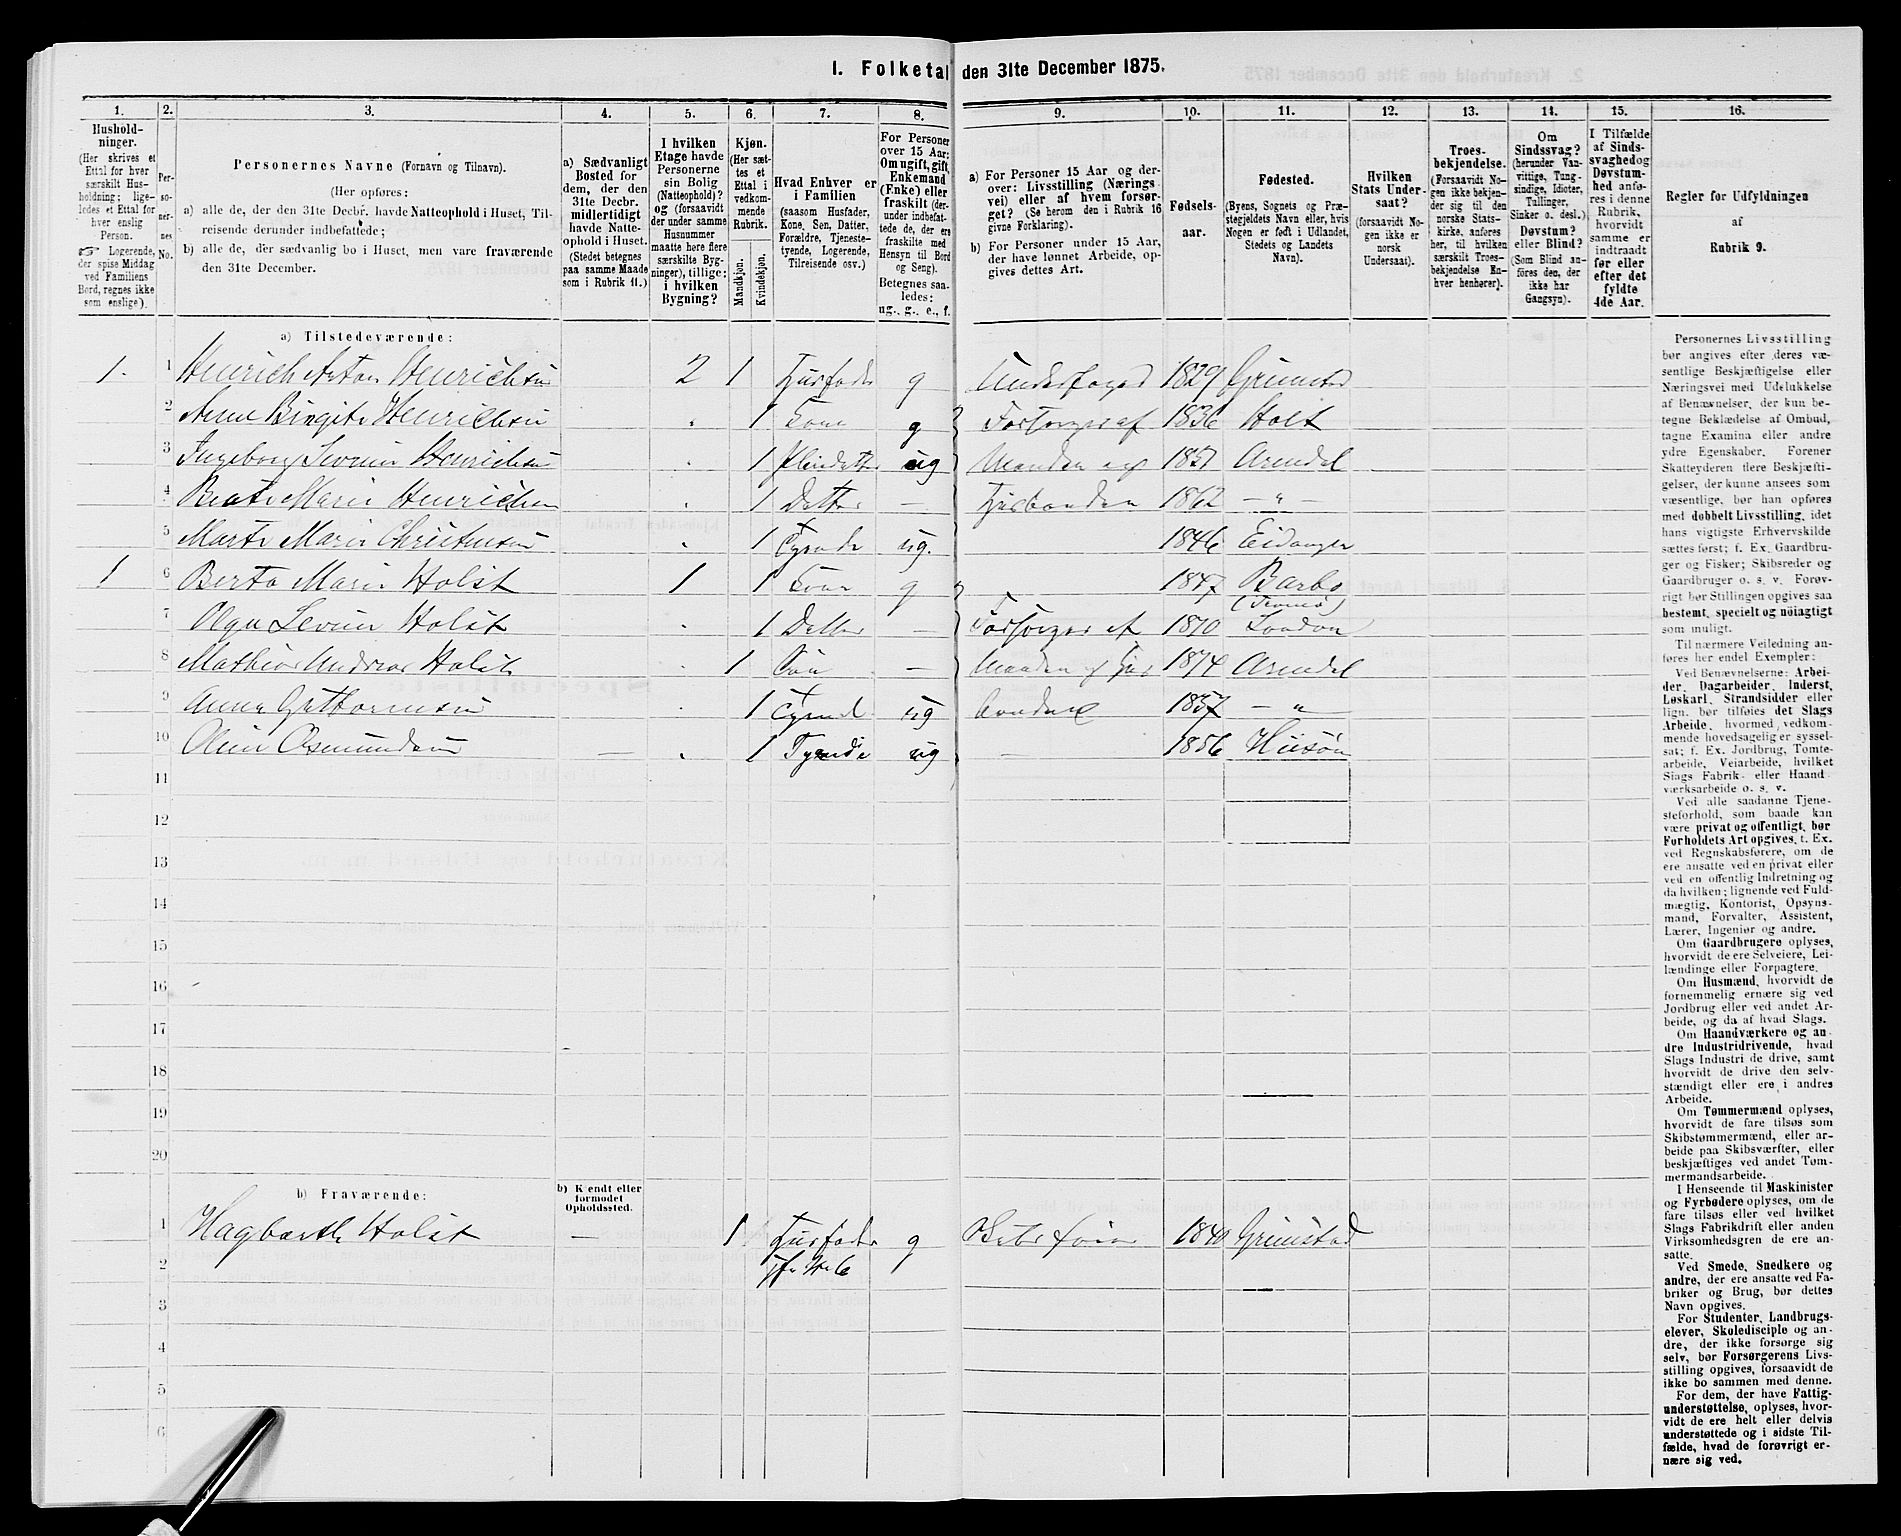 1. Folketal den 31te December 1875.
1.
2.
3.
4.
5.
6.
7.
8.
9.
10.
11.
12.
13.
14.
15.
16.
Hushold-
ninger.
(Her skrives et
Ettal for hver
særskilt Hus-
holdning; lige-
ledes et Ettal for
hver enslig
Person.
☞ Logerende,
der spise Middag
ved Familiens
Bord, regnes ikke
som enslige).
Per-
so-
ner-
nes
No.
Personernes Navne (Fornavn og Tilnavn).
(Her opføres:
a) alle de, der den 31te Decbr. havde Natteophold i Huset, Til-
reisende derunder indbefattede;
b) alle de, der sædvanlig bo i Huset, men vare fraværende
den 31te December.
a) Sædvanligt
Bosted for
dem, der den
31te Decbr.
midlertidigt
havde Natte-
ophold i Huset.
(Stedet betegnes
paa samme Maade
som i Rubrik 11.)
I hvilken
Etage havde
Personerne
sin Bolig
(Natteophold)?
og (forsaavidt
der under samme
Husnummer
maatte høre flere
særskilte Byg-
ninger), tillige:
i hvilken
Bygning?
Kjøn.
(Her sæt-
tes et
Ettal i
vedkom-
mende
Rubrik.
Mandkjøn.
Kvindekjøn.
Hvad Enhver er
i Familien
(saasom Husfader,
Kone, Søn, Datter,
Forældre, Tjeneste-
tyende, Logerende,
Tilreisende osv.)
For Personer
over 15 Aar:
Om ugift, gift,
Enkemand
(Enke) eller
fraskilt (der-
under indbefat-
tede de, der ere
fraskilte med
Hensyn til Bord
og Seng).
Betegnes saa-
ledes:
ug., g., e., f.
a) For Personer 15 Aar og der-
over: Livsstilling (Nærings-
vei) eller af hvem forsør-
get? (Se herom den i Rubrik 16
givne Forklaring).
b) For Personer under 15 Aar,
der have lønnet Arbeide, op-
gives dettes Art.
Fødsels-
aar.
Fødested.
(Byens, Sognets og Præ-
stegjeldets Navn eller, hvis
Nogen er født i Udlandet,
Stedets og Landets
Navn).
Hvilken
Stats Under-
saat?
(forsaavidt No-
gen ikke er
norsk
Undersaat).
Troes-
bekjendelse.
(Forsaavidt No-
gen ikke bekjen-
der sig til den
norske Stats-
kirke, anføres
her, til hvilken
særskilt Troes-
bekjendelse En-
hver henhører).
Om
Sindssvag?
(herunder Van-
vittige, Tung-
sindige, Idioter,
Tullinger,
Sinker o. desl.).
Døvstum?
eller Blind?
(Som Blind an-
føres den, der
ikke har
Gangsyn).
I Tilfælde
af Sinds-
svaghed og
Døvstum-
hed anfø-
res i denne
Rubrik,
hvorvidt
samme er
indtraadt
før eller
efter det
fyldte
4de Aar.
Regler for Udfyldningen
af
Rubrik 9.
a) Tilstedeværende:
1. 1 Henrich Anton Henrichsen 2 1 Husfader g Underfoged 1829 Grimstad
2 Anne Birgite Henrichsen 1 Kone g Forsørges af 1836 Holt
3 Ingeborg Severine Henrichsen 1 ug Manden og Arendal
4 Marie Henrichsen 1 Datter — Husbonden 1862 — " —
5 Marte Marie Christensen 1 Tyende ug. 1846 Eidanger
1 6 Berta Marie Holst 1 1 Kone g 1847 Barbo
(Tromø)
7 Olga Severine Holst 1 Datter — Forsørges af 1870 London
8 Mathias Andreas Holst 1 Søn — Manden og Hus 1874 Arendal
9 Anna Guttormsen 1 Tyende ug bonden 1857 — " —
10 Oline Osmundsen — 1 Tyende ug — 1856 Hisøen
11
12
13
14
15
16
17
18
19
20
b) Fraværende:
b) Kjendt eller
formodet
Opholdssted.
1 Hagbarth Holst — 1 Husfader g 1840 Grimstad
2 jfr No 6
3
4
5
6
Personernes Livsstilling
bør angives efter deres væ-
sentlige Beskjæftigelse eller
Næringsvei med Udelukkelse
af Benævnelser, der kun be-
tegne Beklædelse af Ombud,
tagne Examina eller andre
ydre Egenskaber. Forener
Skatteyderen flere Beskjæfti-
gelser, der kunne ansees som
væsentlige, bør han opføres
med dobbelt Livsstilling, idet
hans vigtigste Erhvervskilde
sættes først; f. Ex. Gaardbru-
ger og Fisker; Skibsreder og
Gaardbruger o. s. v. Forøv-
rigt bør Stillingen opgives saa
bestemt, specielt og nöiagtigt
som muligt.
Til nærmere Veiledning an-
føres her endel Exempler:
Ved Benævnelserne: Arbei-
der, Dagarbeider, Inderst,
Løskarl, Strandsidder eller
lign. bør tilføies det Slags
Arbeide, hvormed vedkom-
mende hovedsagelig er syssel-
sat; f. Ex. Jordbrug, Tomte-
arbeide, Veiarbeide, hvilket
Slags Fabrik- eller Haand-
værksarbeide o. s. v.
Ved alle saadanne Tjene-
steforhold, som baade kan
være privat og offentligt, bør
Forholdets Art opgives, t. Ex.
ved Regnskabsførere, om de
ere ansatte ved en privat eller
ved en offentlig Indretning og
da hvilken; lignende ved Fuld-
mægtig, Kontorist, Opsyns-
mand, Forvalter, Assistent,
Lærer, Ingeniør og andre.
Om Gaardbrugere oplyses,
hvorvidt de ere Selveiere, Lei-
lændinge eller Forpagtere.
Om Husmænd, hvorvidt de
fornemmelig ernære sig ved
Jordbrug eller ved andet Ar-
beide, og da af hvad Slags.
Om Haandværkere og an-
dre Industridrivende, hvad
Slags Industri de drive, samt
hvorvidt de drive den selv-
stændigt eller ere i andres
Arbeide.
Om Tømmermænd oplyses,
hvorvidt de fare tilsøs som
Skibstømmermænd, eller ar-
beide paa Skibsværfter, eller
beskjæftiges ved andet Tøm-
mermandsarbeide.
I Henseende til Maskinister
og Fyrbødere oplyses, om de
fare tilsøs eller ved hvilket
Slags Fabrikdrift eller anden
Virksomhedsgren de ere an-
satte.
Ved Smede, Snedkere og
andre, der ere ansatte ved Fa-
briker og Brug, bør dettes
Navn opgives.
For Studenter, Landbrugs-
elever, Skoledisciple og an-
dre, der ikke forsørge sig
selv, bør Forsørgerens Livs-
stilling opgives, forsaavidt de
ikke bo sammen med denne.
For dem, der have Fattig-
understøttelse, oplyses, hvor-
vidt de ere helt eller delvis
understøttede og i sidste Til-
fælde, hvad de forøvrigt er-
nære sig ved.